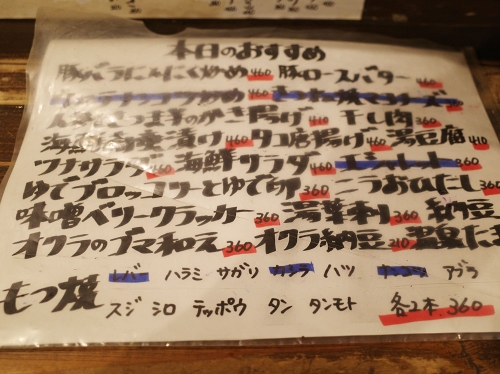 本日のおすすめ
豚バラにんにく炒め 460 豚ロースバター 460
のかき揚げ 410 干し肉 360
海鮮 漬け 460 タコ唐揚げ 460 湯豆腐 410
ツナサラダ 460 海鮮サラダ 460 エシャレット 360
ゆでブロッコリーとゆで卵 360 ニラおひたし 360
味噌ベリークラッカー 360 湯葉刺し 360 納豆
オクラのゴマ和え 360 オクラ納豆 210 温泉たま
もつ焼 レバー ハラミ サガリ カシラ ハツ アブラ
スジ シロ テッポウ タン タンモト 各2本 360